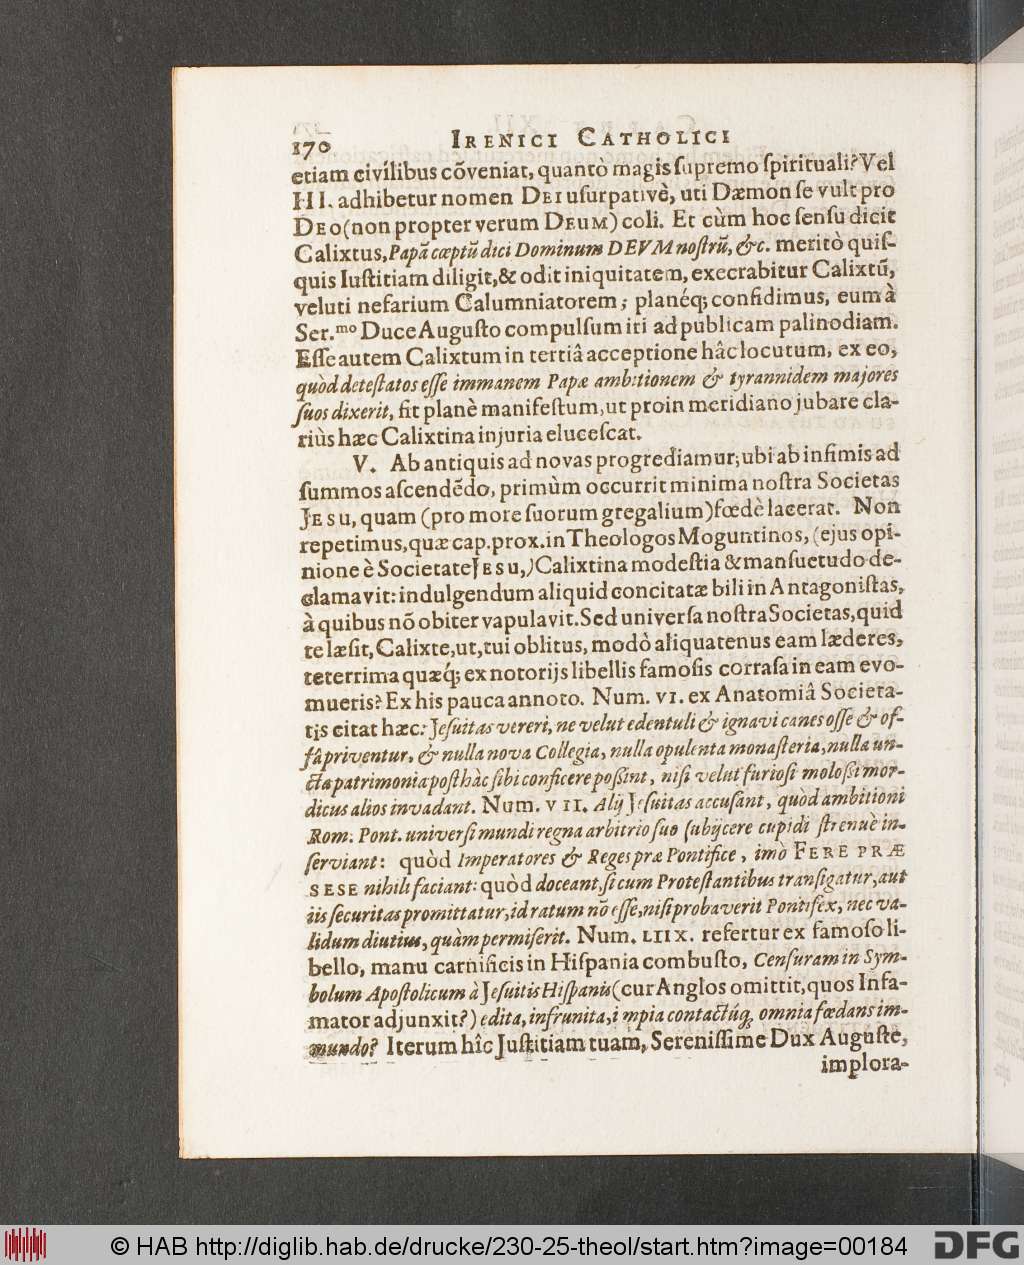 170 IRENICI CATHOLICI
etiam civilibus cõveniat, quantò magis ſupremo ſpirituali? Vel
III. adhibetur nomen DEI uſurpativè, uti Dæmon ſe vult pro
DEO (non propter verum DEUM) coli. Et cùm hoc ſenſu dicit
Calixtus, Papã cœptũ dici Dominum DEVM noſtrũ, &c. meritò quiſ-
quis Iuſtitiam diligit, & odit iniquitatem, execrabitur Calixtũ,
veluti nefarium Calumniatorem; planéq; confidimus, eum à
Ser.mo Duce Auguſto compulſum iri ad publicam palinodiam.
Eſſe autem Calixtum in tertiâ acceptione hâc locutum, ex eo,
quòd deteſtatos eſſe immanem Papæ ambitionem & tyrannidem majores
ſuos dixerit, fit planè manifeſtum, ut proin meridiano jubare cla-
riùs hæc Calixtina injuria eluceſcat.
V. Ab antiquis ad novas progrediamur; ubi ab infimis ad
ſummos aſcendẽdo, primùm occurrit minima noſtra Societas
JESU, quam (pro more ſuorum gregalium) fœdè lacerat. Non
repetimus, quæ cap. prox. in Theologos Moguntinos, (ejus opi-
nione è Societate JESU,) Calixtina modeſtia & manſuetudo de-
clamavit: indulgendum aliquid concitatæ bili in Antagoniſtas,
à quibus nõ obiter vapulavit. Sed univerſa noſtra Societas, quid
te læſit, Calixte, ut, tui oblitus, modò aliquatenus eam læderes,
teterrima quæq́; ex notorijs libellis famoſis corraſa in eam evo-
mueris? Ex his pauca annoto. Num. VI. ex Anatomiâ Societa-
tis citat hæc: Jeſuitas vereri, ne velut edentuli & ignavi canes oſſe & of-
fâ priventur, & nulla nova Collegia, nulla opulenta monaſteria, nulla un-
cta patrimonia poſthàc ſibi conficere poſſint, niſi velut furioſi moloſſi mor-
dicus alios invadant. Num. VII. Alij Jeſuitas accuſant, quòd ambitioni
Rom. Pont. univerſi mundi regna arbitrio ſuo ſubijcere cupidi ſtrenuè in-
ſerviant: quòd Imperatores & Reges præ Pontifice, imò FERE PRÆ
SESE nihili faciant: quòd doceant, ſi cum Proteſtantibus tranſigatur, aut
iis ſecuritas promittatur, id ratum nõ eſſe, niſi probaverit Pontifex, nec va-
lidum diutius, quàm permiſerit. Num. LIIX. refertur ex famoſo li-
bello, manu carnificis in Hiſpania combuſto, Cenſuram in Sym-
bolum Apoſtolicum à Jeſuitis Hiſpanis (cur Anglos omittit, quos Infa-
mator adjunxit?) edita, infrunita, impia contactúq́, omnia fœdans im-
mundo? Iterum hîc Juſtitiam tuam, Sereniſſime Dux Auguſte,
implora-
© HAB http://diglib.hab.de/drucke/230-25-theol/start.htm?image=00184
DFG